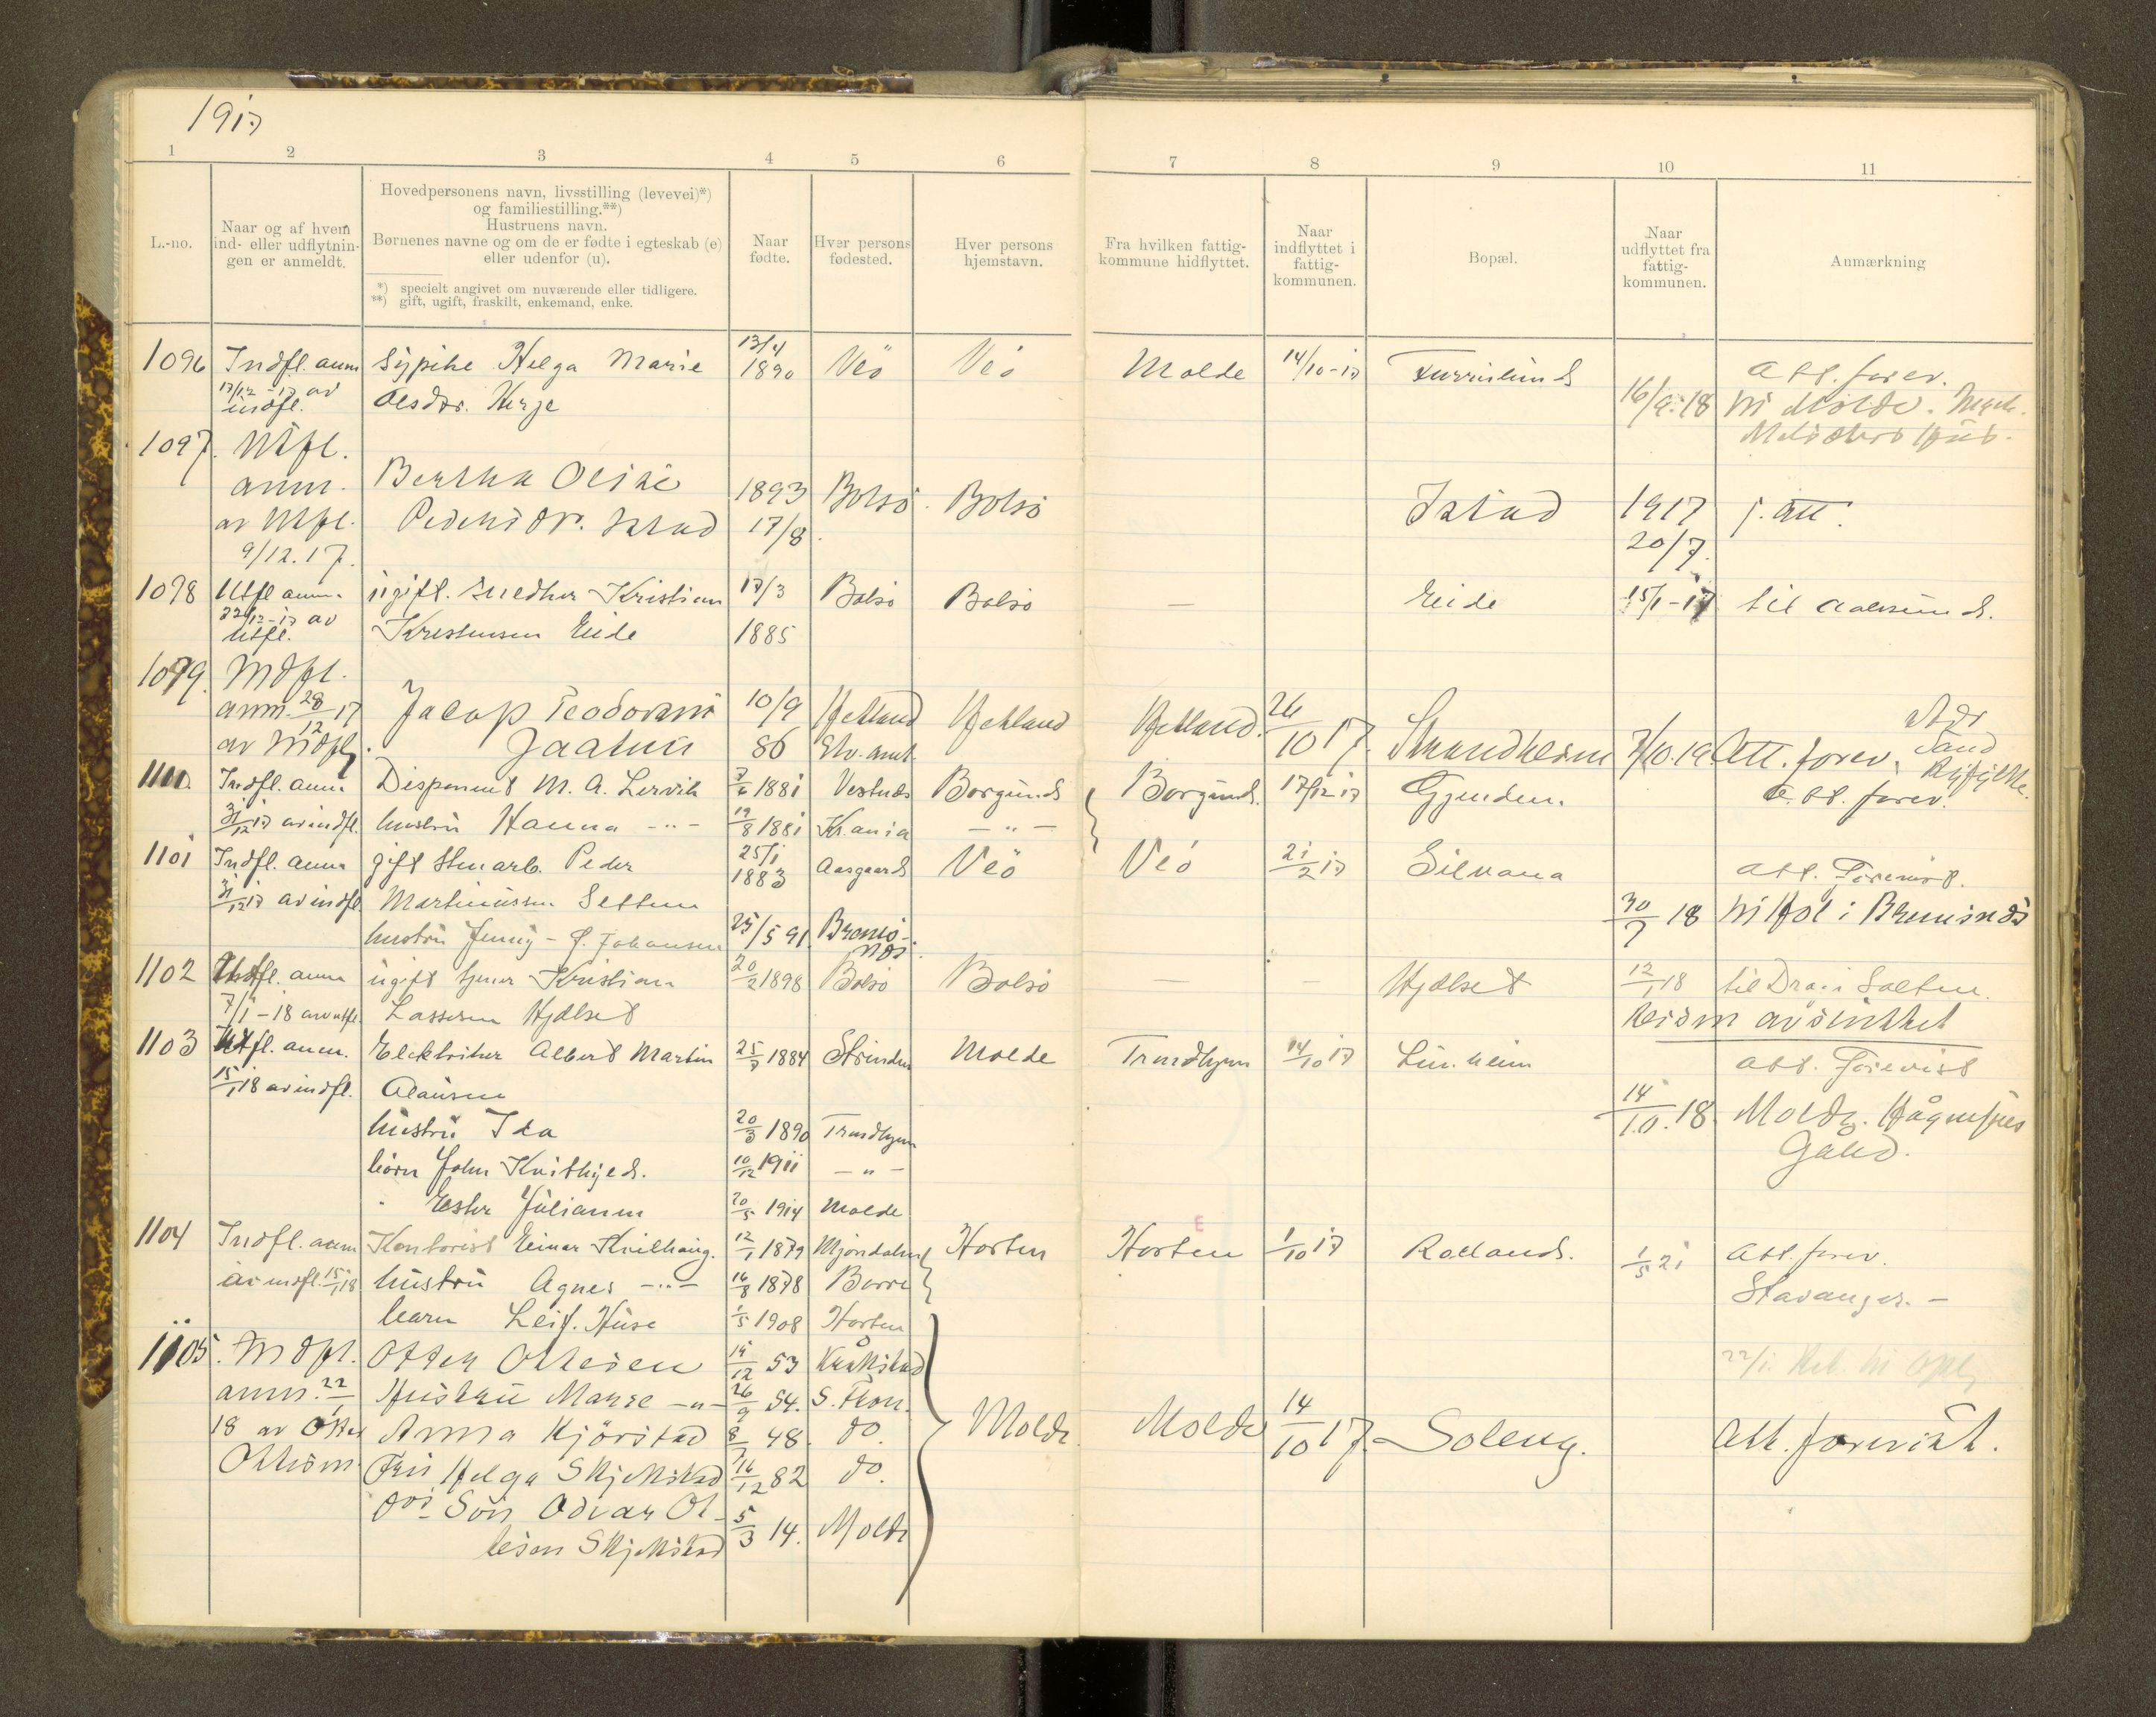 1917
1 2 3 4 5 6 7 8 9 10 11
L.-no.
Naar og af hvem
ind- eller udflytnin-
gen er anmeldt.
Hovedpersonens navn, livsstilling (levevei)*)
og familiestilling.**)
Hustruens navn.
Børnenes navne og om de er fødte i egteskab (e)
eller udenfor (u).
*) specielt angivet om nuværende eller tidligere.
**) gift, ugift, fraskilt, enkemand, enke.
Naar
fødte.
Hver persons
fødested.
Hver persons
hjemstavn.
Fra hvilken fattig-
kommune hidflyttet.
Naar
indflyttet i
fattig-
kommunen.
Bopæl.
Naar
udflyttet fra
fattig-
kommunen.
Anmærkning
1096 Indfl. anm Sypike Helga Marie 13/4 1890 Veö Veö Molde 14/10-17 Att. forev.
17/12-17 av indfl. Olsdtr. Herje 16/9-18 til Molde.
1097. Utfl.
anm. Bertha Oline 1893 Bolsö. Bolsö Istad 1917 j. att.
av Utfl. Pedersdtr. Istad 17/8. 20/7.
9/12.17.
1098 Utfl anm. ugift. snedker Kristian 17/3 Bolsö Bolsö — Eide 15/1-17 til Aalesund.
22/12-17 av Utfl. Kristensen Eide 1885
1099. Indfl.
anm. 28/12 17 Jacob Teodor 10/9 Hetland Hetland Hetland. 26/10 17. Strandheim 7/10.19. Att. forev.
av Indfl. Jaatun 86 Stv. amt. Sand Ryfylke.
1100. Indfl. anm Disponent M. A. Lervik 7/6 1881 Vestnes Borgund Borgund. 17/12 17 Gjenden. Att. forev.
31/12 17 av indfl. hustru Hanna -"- 19/8 1881 Kr.ania -"-
1101 Indfl. anm gift Stenarb. Peder 25/1 1883 Aasgaard Veö Veö 21/2 17 Silvana Att. Forevist.
31/12 17 av indfl. Martinussen Settem 30/7 18 til Hol i Bremsnes
hustru Jenny - f. Johansen 25/5 91. Bremsnes.
1102 Utfl. anm ugift tjener Kristian 20/2 1898 Bolsö Bolsö — — Hjelset 12/1 18 til Drag i Salten.
7/1-18 av utfl. Lassesen Hjelset Reisen avsluttet
1103 Utfl. anm. Elektriker Albert Martin 25/7 1884 Strinden Molde Trondhjem 14/10 17 Linheim Att. Forevist
15/1 18 av indfl. Olausen 14/10.18. Molde. Hågensens
hustru Ida 20/3 1890 Trondhjem Gård.
börn John 10/12 1911 -"-
" Ester Julianne 20/5 1914 Molde
1104 Indfl. anm Kontorist Einar Kvilhaug. 12/1 1879 Mjöndalen Horten Horten 1/10 17 Rolland. 1/5 21 Att. forev.
av indfl. 15/1 18 hustru Agnes -"- 16/8 1878 Borre Stavanger. -
barn Leif. Huse 1/5 1908 Horten
1105. Indfl. Otter Ottesen 14/12 53 Kråkstad 22/1.
anm. 22/1 Hustru Marie -"- 26/9 54. S. Tron.
18 av Otter Anna Kjörstad 8/7 48. do. Molde Molde 14/10 17. Soleng. Att. forevist.
Ottesen. Fru Helga Skjelstad 16/12 82 do.
do's Sön Odvar Ot-
tesen Skjelstad 5/3 14. Molde